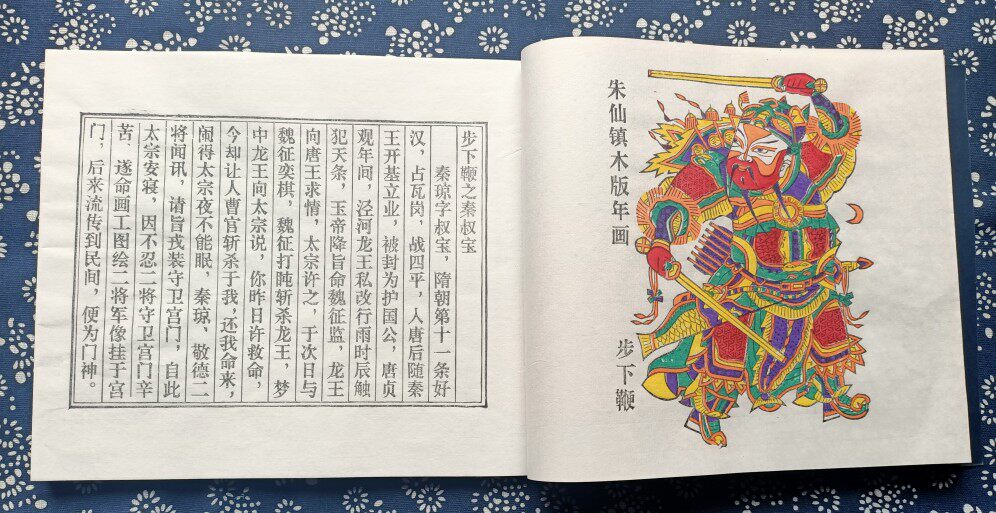 步下鞭之秦叔宝
秦琼字叔宝，隋朝第十一条好
汉，占瓦岗，战四平，人唐后随秦
王开基立业，被封为护国公，唐贞
观年间，泾河龙王私改行雨时辰触
犯天条，玉帝降旨命魏征监，龙王
向唐王求情，太宗许之，于次日与
魏征奕棋，魏征打盹斩杀龙王，梦
中龙王向太宗说，你昨日许救命，
今却让人曹官斩杀于我，还我命来，
闹得太宗夜不能眠，秦琼，敬德二
将闻讯，请旨戎装守卫宫门，自此
太宗安寝，因不忍二将守卫宫门辛
苦，遂命画工图绘二将军像挂于宫
门，后来流传到民间，便为门神。
朱仙镇木版年画
步下鞭